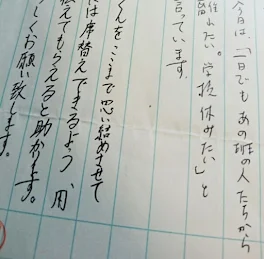 今日は、「一日でも あの班の人たちから
離れたい。学校休みたい」と
言っています。
くんを ここまで思い詰めさせて
は席替えできるよう
伝えてもらえると助かります。
しくお願い致します。